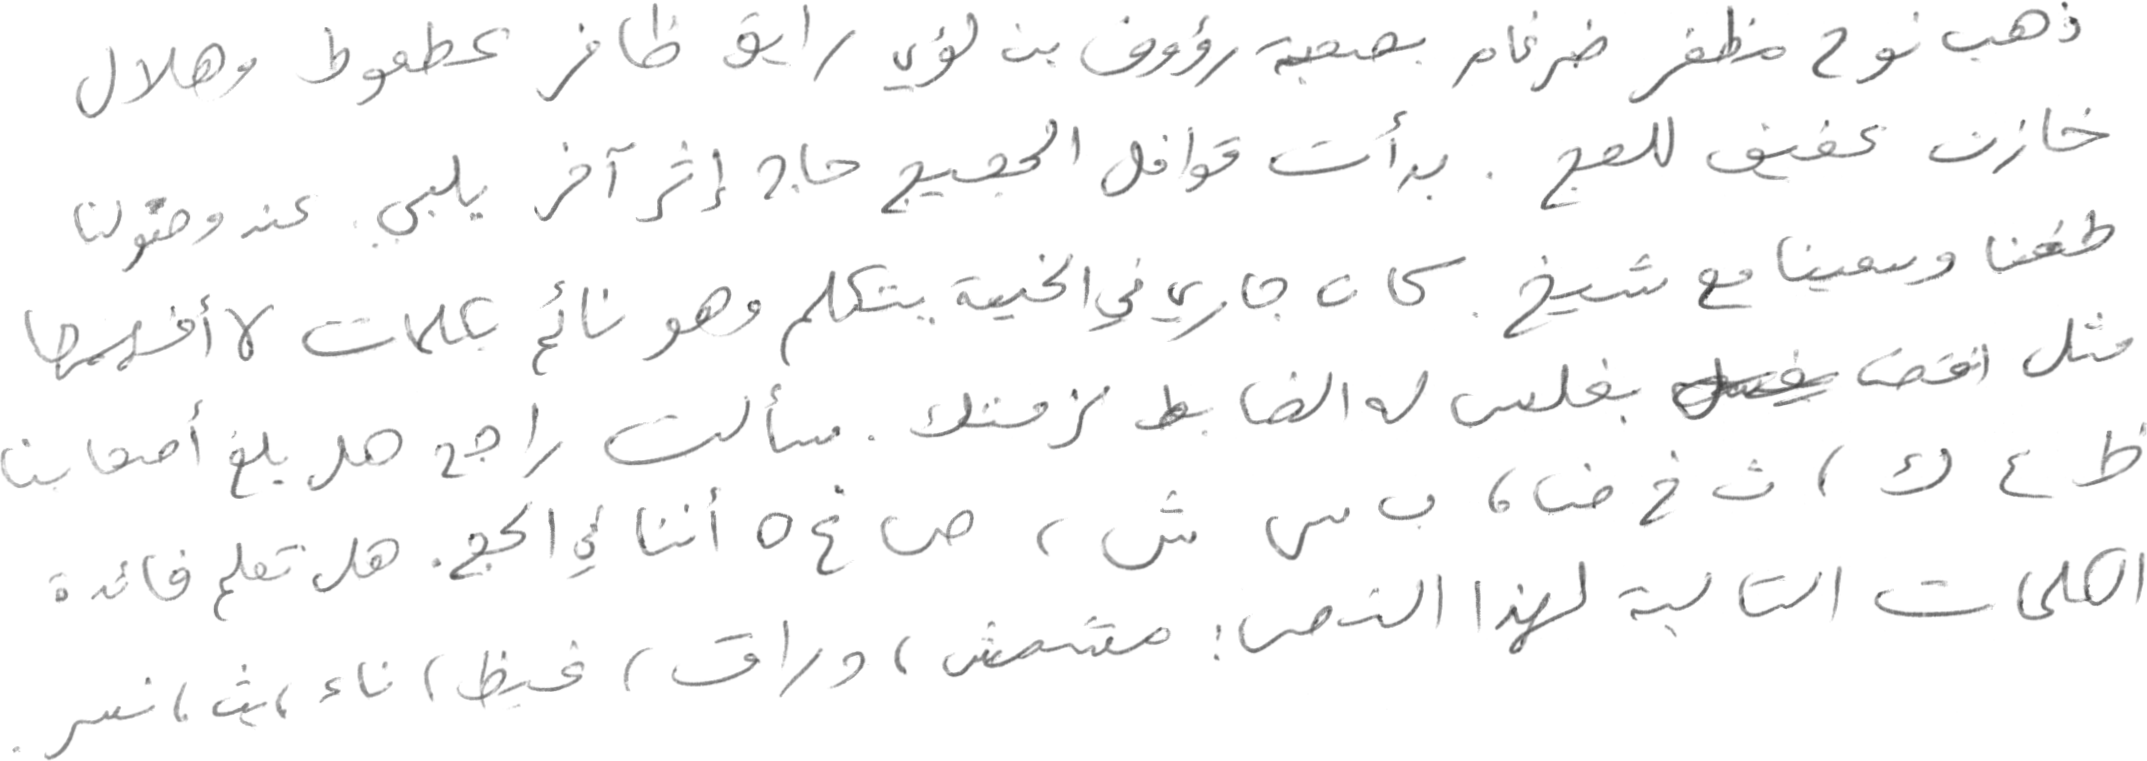 ذهب نوح مظفر ضرغام بصحبة رؤوف بن لؤي رايق ظافر عطعوط وهلال
خازن عفيف للحج . بدأت قوافل الحجيج حاج إثر آخر يلبي . عند وصولنا
طفنا وسعينا مع شيخ . كان جاري في الخيمة يتكلم وهو نائم بكلمات لا أفهمها
مثل افقت بفلس له الضابط لزمتك . سألت راجح هل بلغ أصحابنا
ظ ع ك ، ث خ ض ، ب س ش ، ص غ ه أننا في الحج . هل تعلم فائدة
الكلمات التالية لهذا النص : مشمش ، وراق ، غيظ ، ناء ، بث ، نسر .